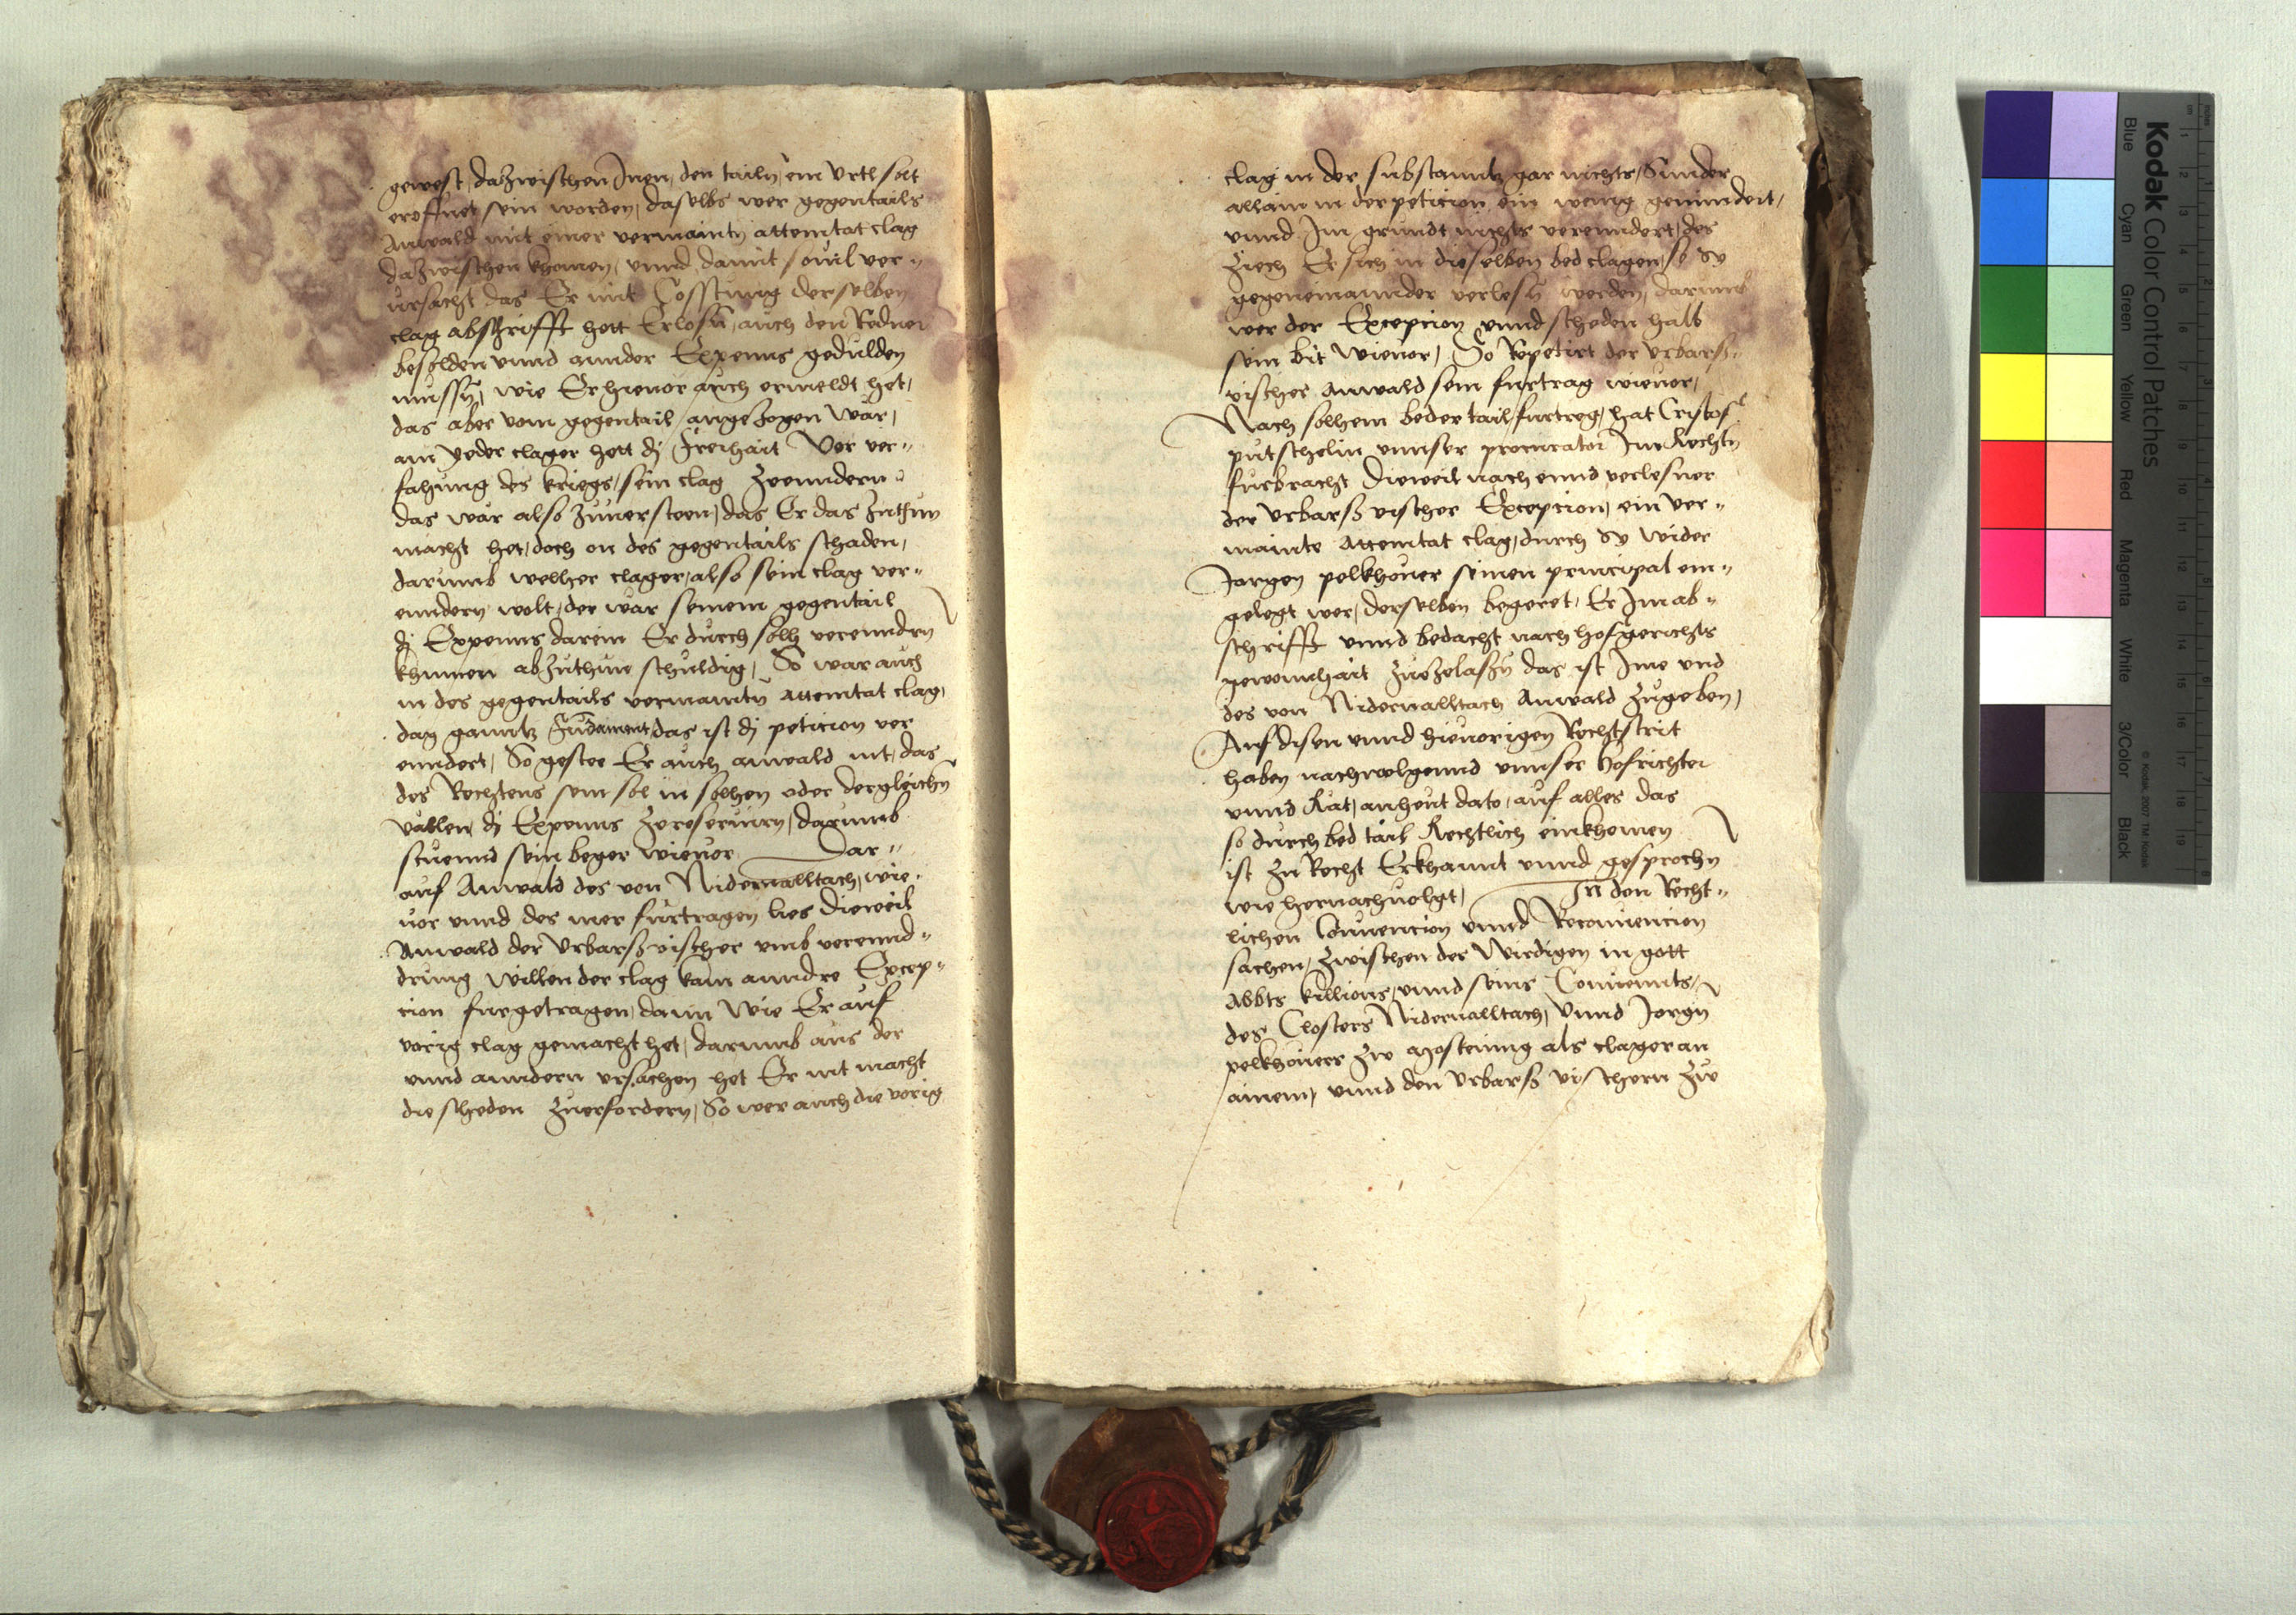 gewest, dazwischen Inen, den tailn, ein Vrtl solt
eroffnet sein worden, daselbs wer gegentails
Anwald mit einer vermaintn attemtat clag
dazwischen khomen, vnnd damit souil ver„
ursacht das Er mit Cosstung derselben
clag abschrifft hett Erlosn, auch den Redner
besolden vnnd annder Expenns gedulden
mussn, wie Er hieuor auch ermeldt het,
das aber vom gegentail angezogen war,
ain yeder clager hett dj Freihait Vor ver„
fahung des kriegs, sein clag Zuenndern„
das war also zuuersteen, das Er das zuthun
macht het, doch on des gegentails schaden,
darumb welher clager, also sein clag ver„
enndern wolt, der war seinem gegentail
dj Expenns darein Er durch solh verenndrn
khumen abzuthun schuldig, So war auch
in des gegentails vermaintn Attemtat clag,
das ganntz Fundament, das ist dj peticion ver
enndert, So gestee Er auch anwald nit, das
des Rechtens sein sol in solhen oder dergleichn
vallen, dj Expenns zereseruirn, darumb
stuennd sein beger wieuor Dar„
auf Anwald des von Nidernalltach, wie„
uor vnnd des mer furtragen lies Dieweil
Anwald der Vrbarss vischer vmb verennd„
drung willen der clag kain anndre Excep„
cion furgetragen, dann Wie Er auf
vorig clag gemacht het, darumb aus der
vnnd anndern vrsachen het Er nit macht
die scheden Zuerfordern, So wer auch die vorig
clag in der substanntz gar nichts, Sunder
allain in der peticion ein wenig gemindert,
vnnd Im grundt nichts verenndert, des
Ziech Er sich in dieselben bed clagen, so Sy
gegeneinannder verlesn werden, darumb
wer der Excepcion vnnd scheden halb
sein bit wieuor, So Repetirt der Vrbarss„
vischer Anwald sein furtrag wieuor,
Nach solhem beder tail furtreg, hat Cristof
putschelin vnnser procurator Im Rechtn
furbracht Dieweil nach ennd verlesner
der Vrbarss vischer Excepcion, ein ver„
mainte Attemtat clag, durch Sy wider
Jorgen pelkhouer seinen principal ein„
gelegt wer, derselben begeret, Er Im ab„
schrifft vnnd bedacht nach hofgerichts
gewonnhait Zuezelassn das ist Ime vnd
des von Nidernalltach Anwald Zugeben,
Auf disen vnnd hieuorigen Rechtstrit
haben nachuolgennd vnnser Hofrichter
vnnd Rat, anheut dato, auf alles das
so durch bed tail Rechtlich einkhomen
ist Zu Recht Erkhannt vnnd gesprochn
wie hernachuolgt, In den Recht„
lichen Conuencion vnnd Reconuencion
sachen, Zwischen der Wirdigen in gott
Abbts killians, vnnd seins Conuennts,
des Closters Nidernalltach, Vnnd Jorgn
pelkhouers Zw Mostening als clager an
ainem, vnnd den Vrbarss vischern Zw
Kodak Color Control Patches
Blue Cyan Green Yellow Red Magenta White 3/Color Black
© Kodak, 2007 TM Kodak